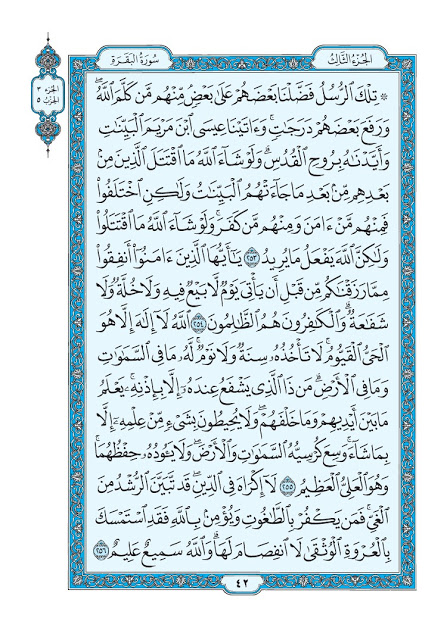 سُورَةُ البَقَرَةِ
الجُزءُ الثَّالِثُ
الجزء ٣
الحزب ٥
۞ تِلْكَ ٱلرُّسُلُ فَضَّلْنَا بَعْضَهُمْ عَلَىٰ بَعْضٍ مِّنْهُم مَّن كَلَّمَ ٱللَّهُ
وَرَفَعَ بَعْضَهُمْ دَرَجَٰتٍ وَءَاتَيْنَا عِيسَى ٱبْنَ مَرْيَمَ ٱلْبَيِّنَٰتِ
وَأَيَّدْنَٰهُ بِرُوحِ ٱلْقُدُسِ وَلَوْ شَآءَ ٱللَّهُ مَا ٱقْتَتَلَ ٱلَّذِينَ مِنۢ
بَعْدِهِم مِّنۢ بَعْدِ مَا جَآءَتْهُمُ ٱلْبَيِّنَٰتُ وَلَٰكِنِ ٱخْتَلَفُوا۟
فَمِنْهُم مَّنْ ءَامَنَ وَمِنْهُم مَّن كَفَرَ وَلَوْ شَآءَ ٱللَّهُ مَا ٱقْتَتَلُوا۟
وَلَٰكِنَّ ٱللَّهَ يَفْعَلُ مَا يُرِيدُ ٢٥٣ يَٰٓأَيُّهَا ٱلَّذِينَ ءَامَنُوٓا۟ أَنفِقُوا۟
مِمَّا رَزَقْنَٰكُم مِّن قَبْلِ أَن يَأْتِىَ يَوْمٌ لَّا بَيْعٌ فِيهِ وَلَا خُلَّةٌ وَلَا
شَفَٰعَةٌ وَٱلْكَٰفِرُونَ هُمُ ٱلظَّٰلِمُونَ ٢٥٤ ٱللَّهُ لَآ إِلَٰهَ إِلَّا هُوَ
ٱلْحَىُّ ٱلْقَيُّومُ لَا تَأْخُذُهُۥ سِنَةٌ وَلَا نَوْمٌ لَّهُۥ مَا فِى ٱلسَّمَٰوَٰتِ
وَمَا فِى ٱلْأَرْضِ مَن ذَا ٱلَّذِى يَشْفَعُ عِندَهُۥٓ إِلَّا بِإِذْنِهِۦ يَعْلَمُ
مَا بَيْنَ أَيْدِيهِمْ وَمَا خَلْفَهُمْ وَلَا يُحِيطُونَ بِشَىْءٍ مِّنْ عِلْمِهِۦٓ إِلَّا
بِمَا شَآءَ وَسِعَ كُرْسِيُّهُ ٱلسَّمَٰوَٰتِ وَٱلْأَرْضَ وَلَا يَـُٔودُهُۥ حِفْظُهُمَا
وَهُوَ ٱلْعَلِىُّ ٱلْعَظِيمُ ٢٥٥ لَآ إِكْرَاهَ فِى ٱلدِّينِ قَد تَّبَيَّنَ ٱلرُّشْدُ مِنَ
ٱلْغَىِّ فَمَن يَكْفُرْ بِٱلطَّٰغُوتِ وَيُؤْمِنۢ بِٱللَّهِ فَقَدِ ٱسْتَمْسَكَ
بِٱلْعُرْوَةِ ٱلْوُثْقَىٰ لَا ٱنفِصَامَ لَهَا وَٱللَّهُ سَمِيعٌ عَلِيمٌ ٢٥٦
٤٢